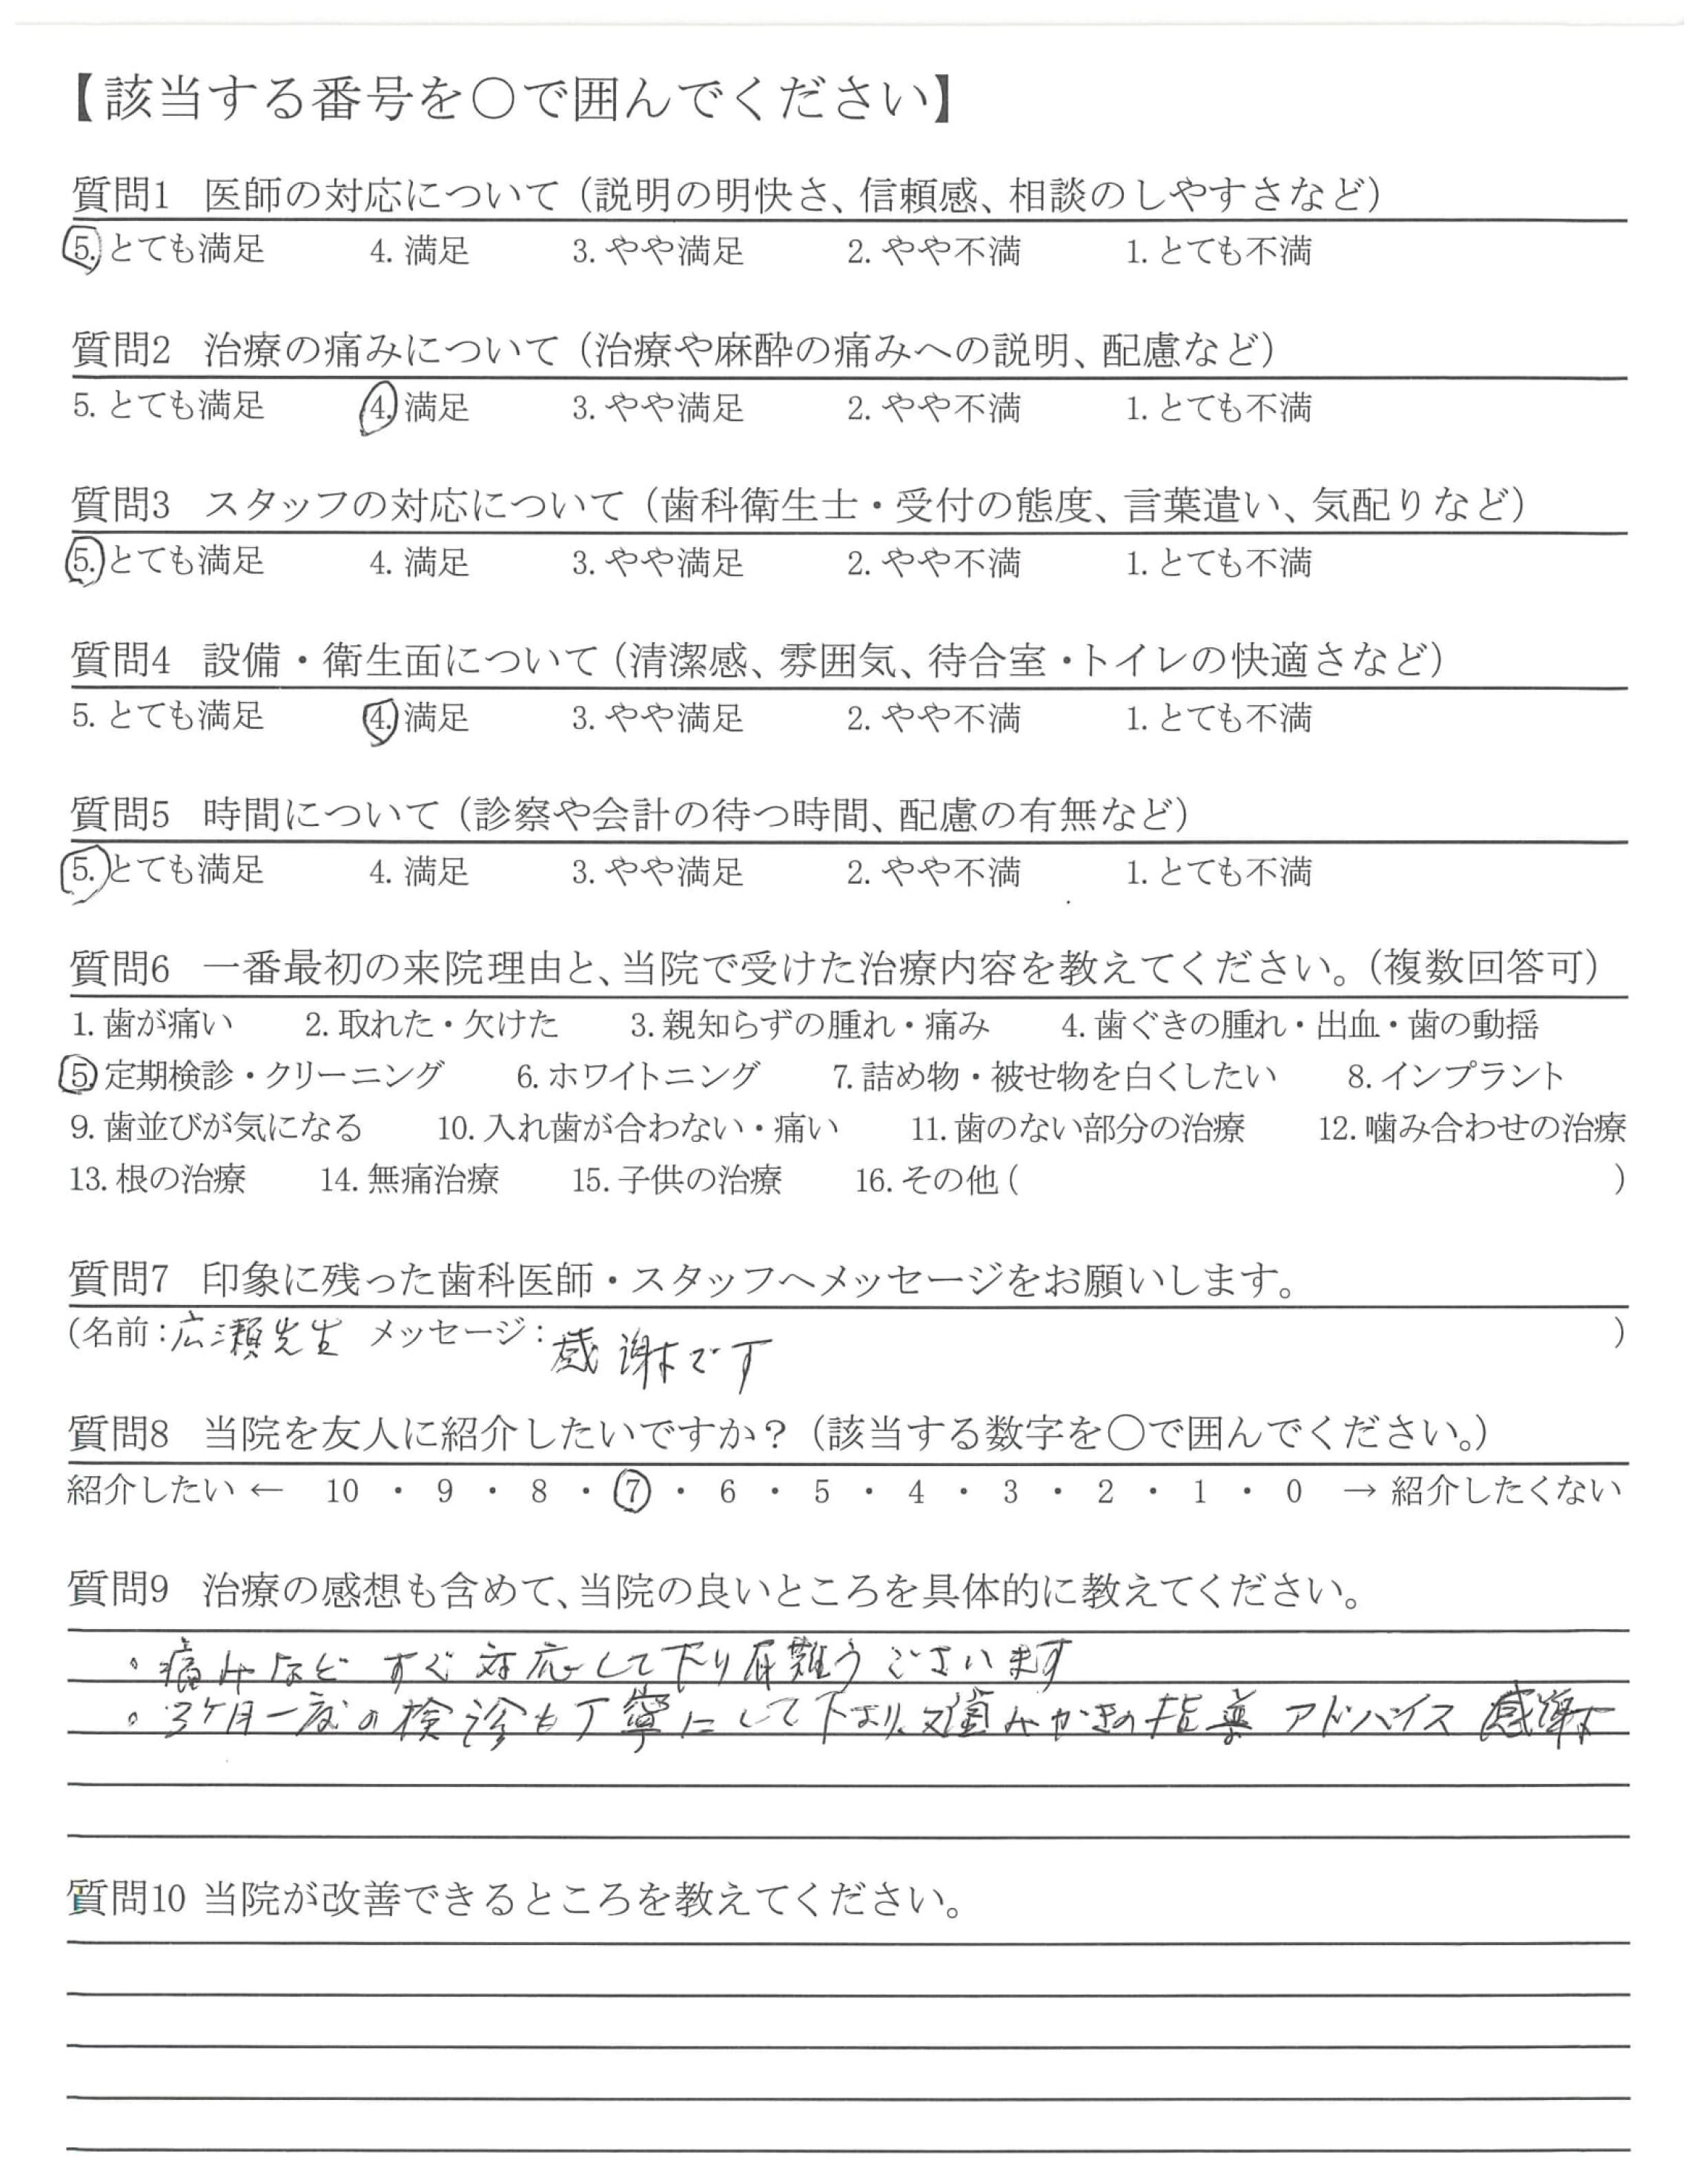 【該当する番号を○で囲んでください】
質問1 医師の対応について（説明の明快さ、信頼感、相談のしやすさなど）
5. とても満足 4. 満足 3. やや満足 2. やや不満 1. とても不満
質問2 治療の痛みについて（治療や麻酔の痛みへの説明、配慮など）
5. とても満足 4. 満足 3. やや満足 2. やや不満 1. とても不満
質問3 スタッフの対応について（歯科衛生士・受付の態度、言葉遣い、気配りなど）
5. とても満足 4. 満足 3. やや満足 2. やや不満 1. とても不満
質問4 設備・衛生面について（清潔感、雰囲気、待合室・トイレの快適さなど）
5. とても満足 4. 満足 3. やや満足 2. やや不満 1. とても不満
質問5 時間について（診察や会計の待つ時間、配慮の有無など）
5. とても満足 4. 満足 3. やや満足 2. やや不満 1. とても不満
質問6 一番最初の来院理由と、当院で受けた治療内容を教えてください。（複数回答可）
1. 歯が痛い 2. 取れた・欠けた 3. 親知らずの腫れ・痛み 4. 歯ぐきの腫れ・出血・歯の動揺
5. 定期検診・クリーニング 6. ホワイトニング 7. 詰め物・被せ物を白くしたい 8. インプラント
9. 歯並びが気になる 10. 入れ歯が合わない・痛い 11. 歯のない部分の治療 12. 噛み合わせの治療
13. 根の治療 14. 無痛治療 15. 子供の治療 16. その他（ ）
質問7 印象に残った歯科医師・スタッフへメッセージをお願いします。
（名前：広瀬先生 メッセージ：感謝です ）
質問8 当院を友人に紹介したいですか？（該当する数字を○で囲んでください。）
紹介したい ← 10 ・ 9 ・ 8 ・ 7 ・ 6 ・ 5 ・ 4 ・ 3 ・ 2 ・ 1 ・ 0 → 紹介したくない
質問9 治療の感想も含めて、当院の良いところを具体的に教えてください。
。痛みなど すぐ対応して下り有難うございます
。3ケ月一度の検診も丁寧にして下より、又歯みかきの指導 アドバイス 感謝
質問10 当院が改善できるところを教えてください。